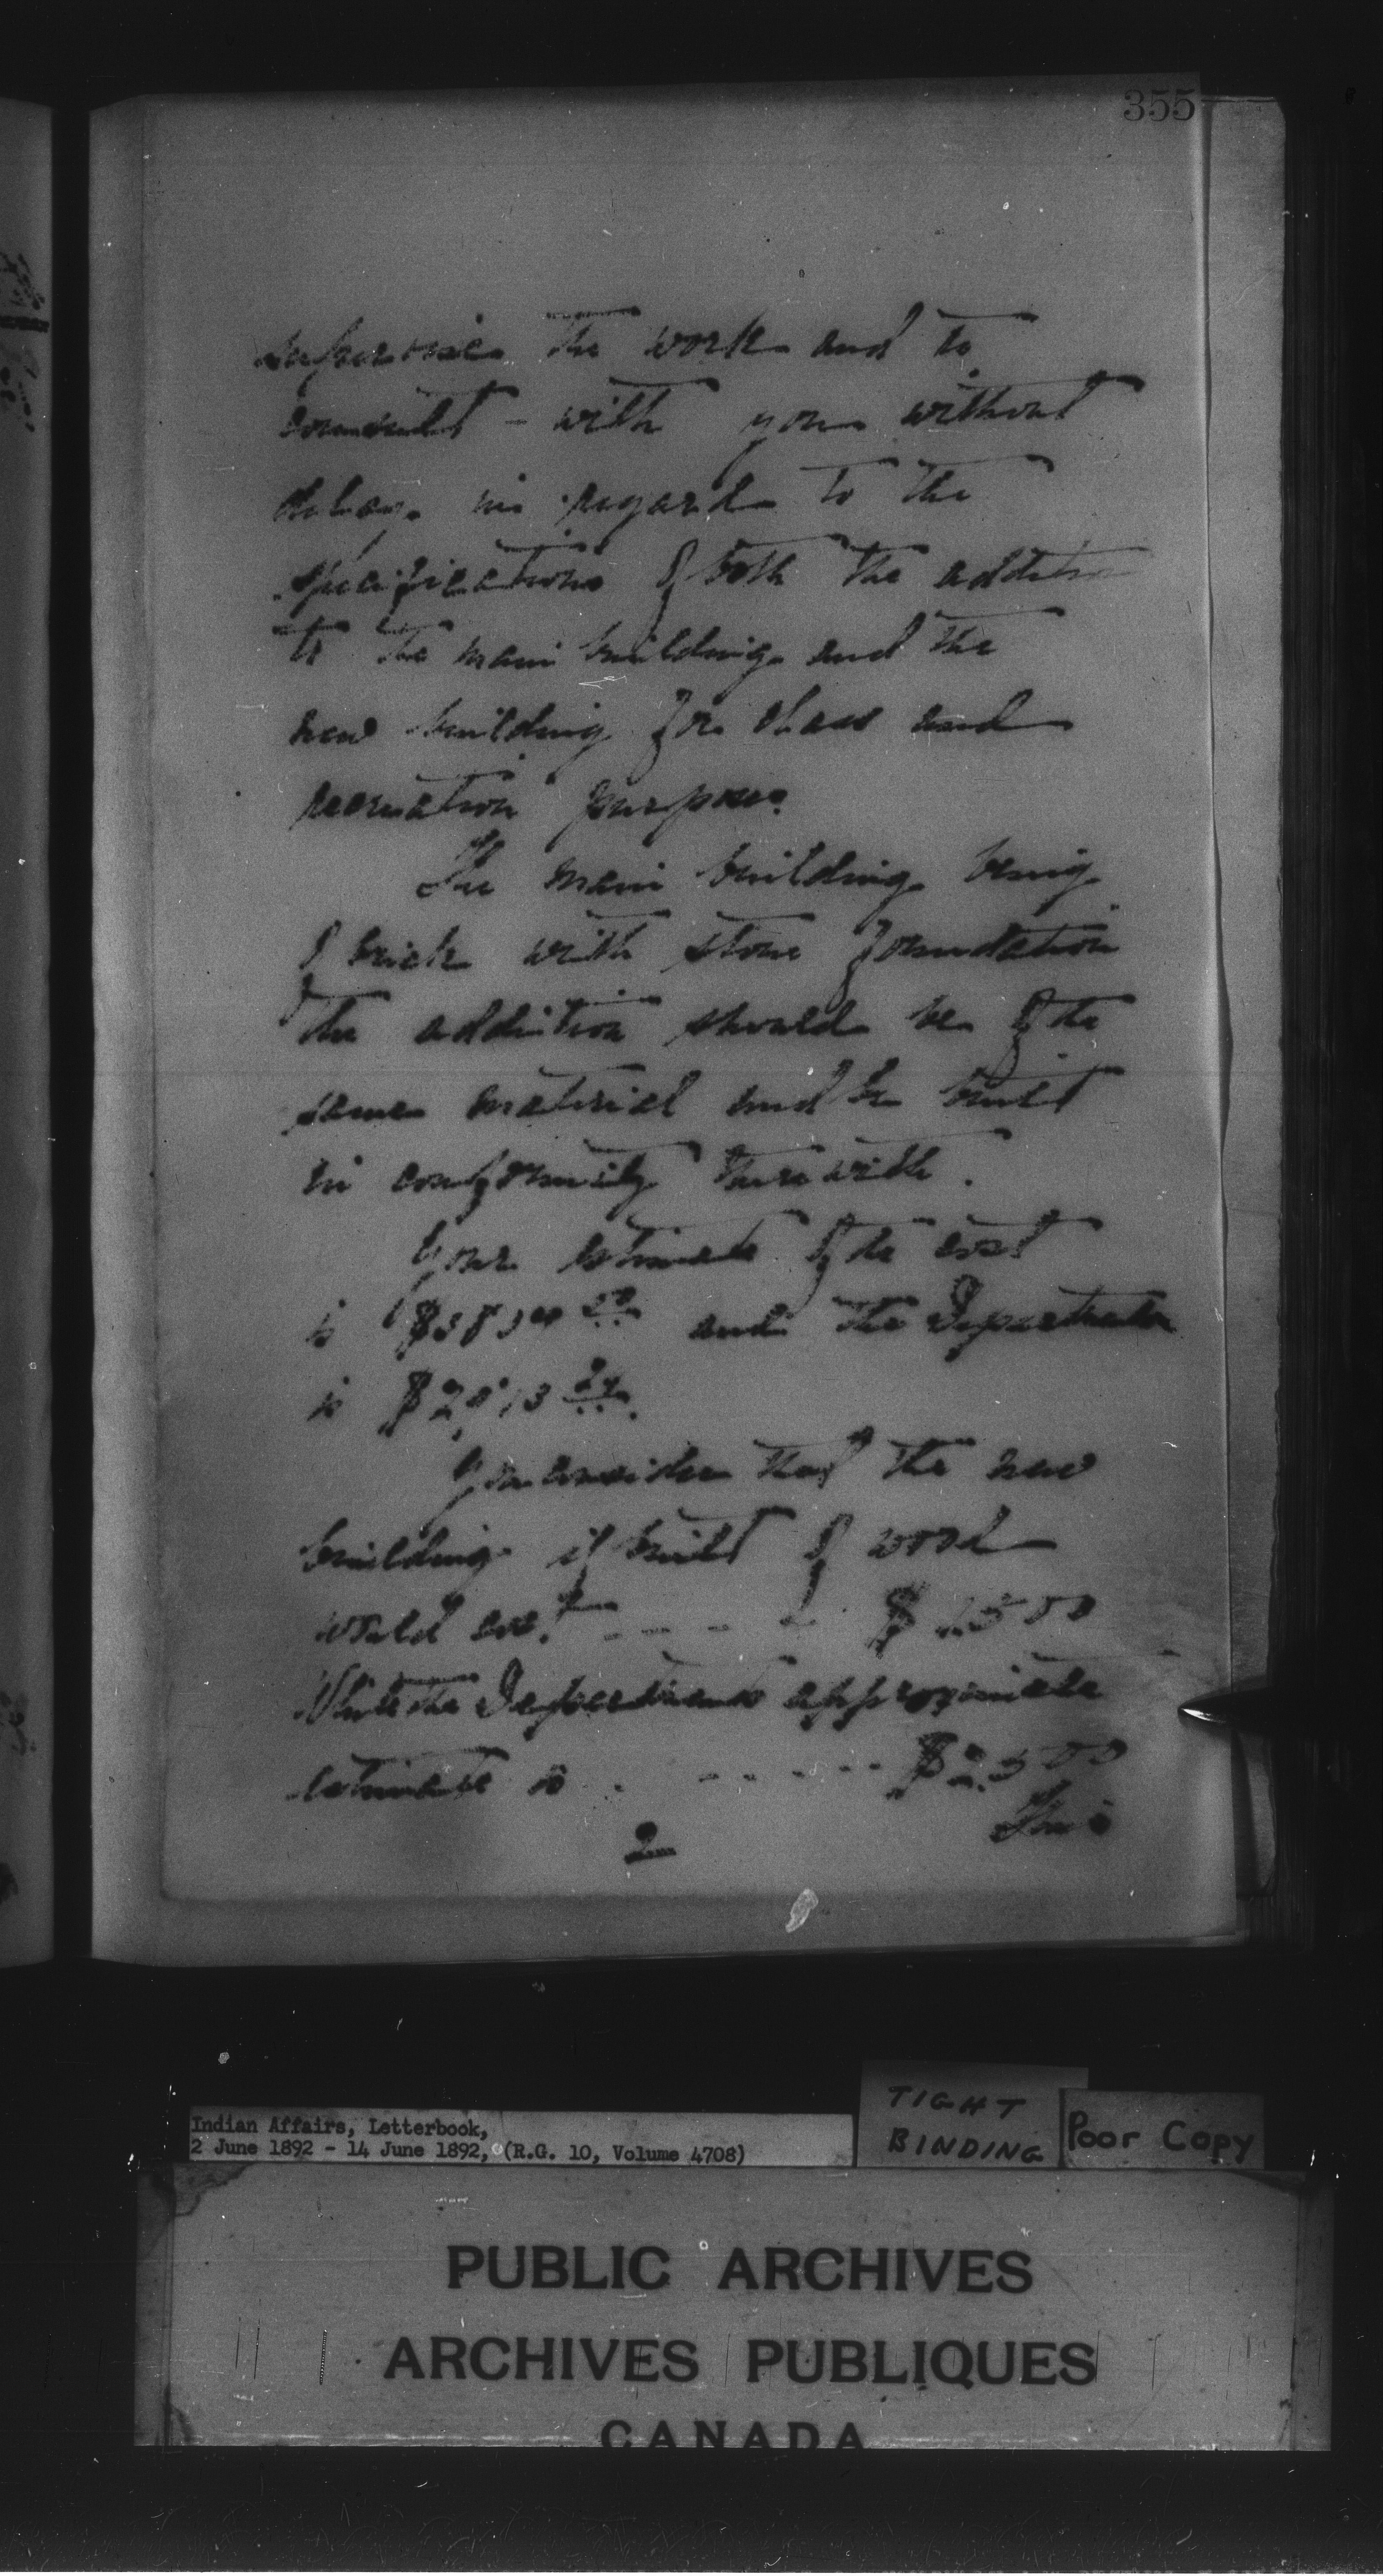 355
supervise the work and to
consult - with you without
delay in regard to the
specifications of both the addition
to the main building and the
new building for class and
recreation purposes
The main building being
of brick with stone foundation
the addition should be of the
same material and be built
in conformity therewith.
Your estimate of the cost
is and the Departments
is
You consider that the new
building if built of wood
would cost - - - - $1500
While the Departments approximate
estimate is - - - - - $2500
This
2
Indian Affairs, Letterbook,
2 June 1892 - 14 June 1892, (R.G. 10, Volume 4708)
TIGHT
BINDING
Poor Copy
PUBLIC ARCHIVES
ARCHIVES PUBLIQUES
CANADA